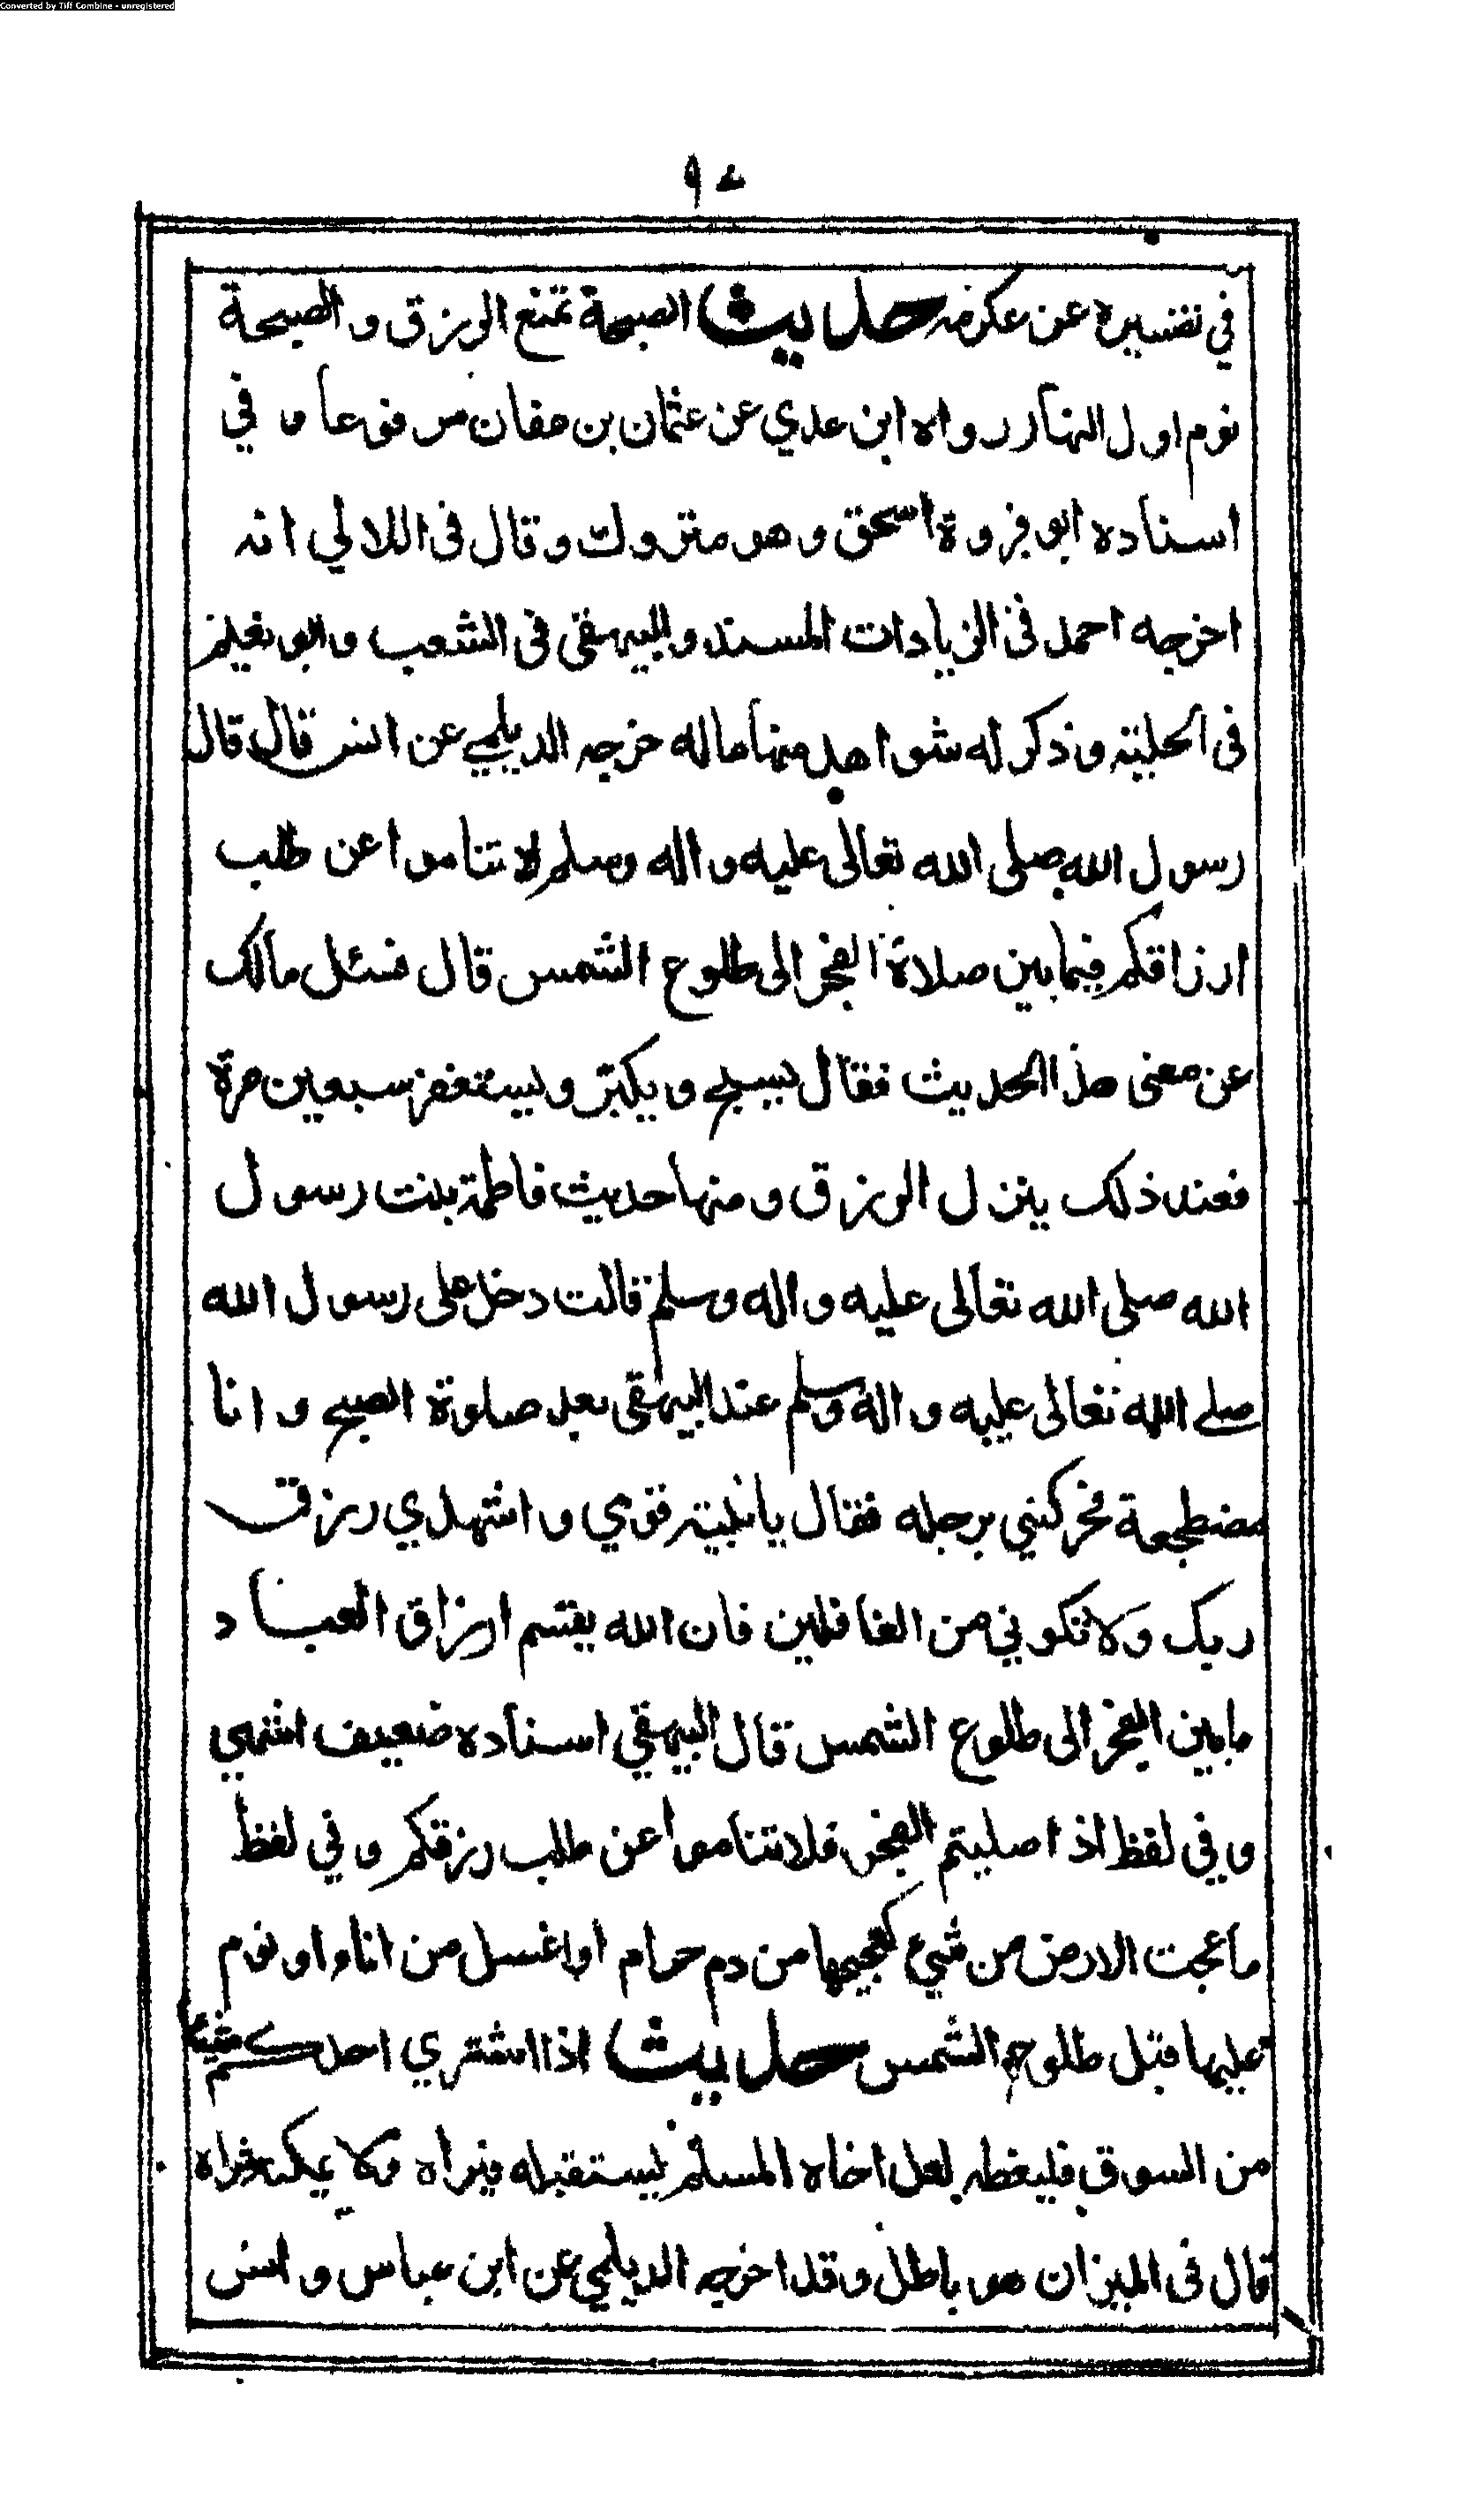 Converted by Tiff Combine - unregistered
٩٧
في تفسيره عن عكرمه حديث الصبحة تمنع الرزق والصبحة
نوم اول النهار رواه ابن عدي عن عثمان بن عفان مرفوعا و في
اسناده ابو فروة اسحق وهو متروك وقال فى اللالي انه
اخرجه احمد فى الزيادات المسند والبيهقى فى الشعب وابو نعيلم
فى الحلية وذكر له شواهد منها ماله خرجه الديلمي عن انس قال قال
رسول الله صلى الله تعالى عليه واله وسلم لا تناموا عن طلب
ارزاقكم فيما بين صلاة الفجر الى طلوع الشمس قال فسئل مالك
عن معنى هذا الحديث فقال يسبح ويكبر ويستغفر سبعين مرة
فعند ذلك ينزل الرزق ومنها حديث فاطمة بنت رسول
الله صلى الله تعالى عليه واله وسلم قالت دخل على رسول الله
صلے الله تعالى عليه واله وسلم عند البيهقى بعد صلوة الصبح وانا
مضطجعة فحركني برجله فقال يا بنية قومي واشهدي رزق
ربك ولا تكوني من الغافلين فان الله يقسم ارزاق العباد
مابين الفجر الى طلوع الشمس قال البيهقي اسناده ضعيف انتهى
وفي لفظ اذا صليتم الفجر فلا تناموا عن طلب رزقكم وفي لفظ
ما عجت الارض من شيء كعجيجها من دم حرام او اغسل من اناء او نوم
عليها قبل طلوع الشمس حديث اذا اشتري احدكم شيئا
من السوق فليغطه لعل اخاه المسلم يستقبله فيراه ولا يمكنه شراه
قال فى الميزان هو باطل وقد اخرجه الديلمي عن ابن عباس وانس